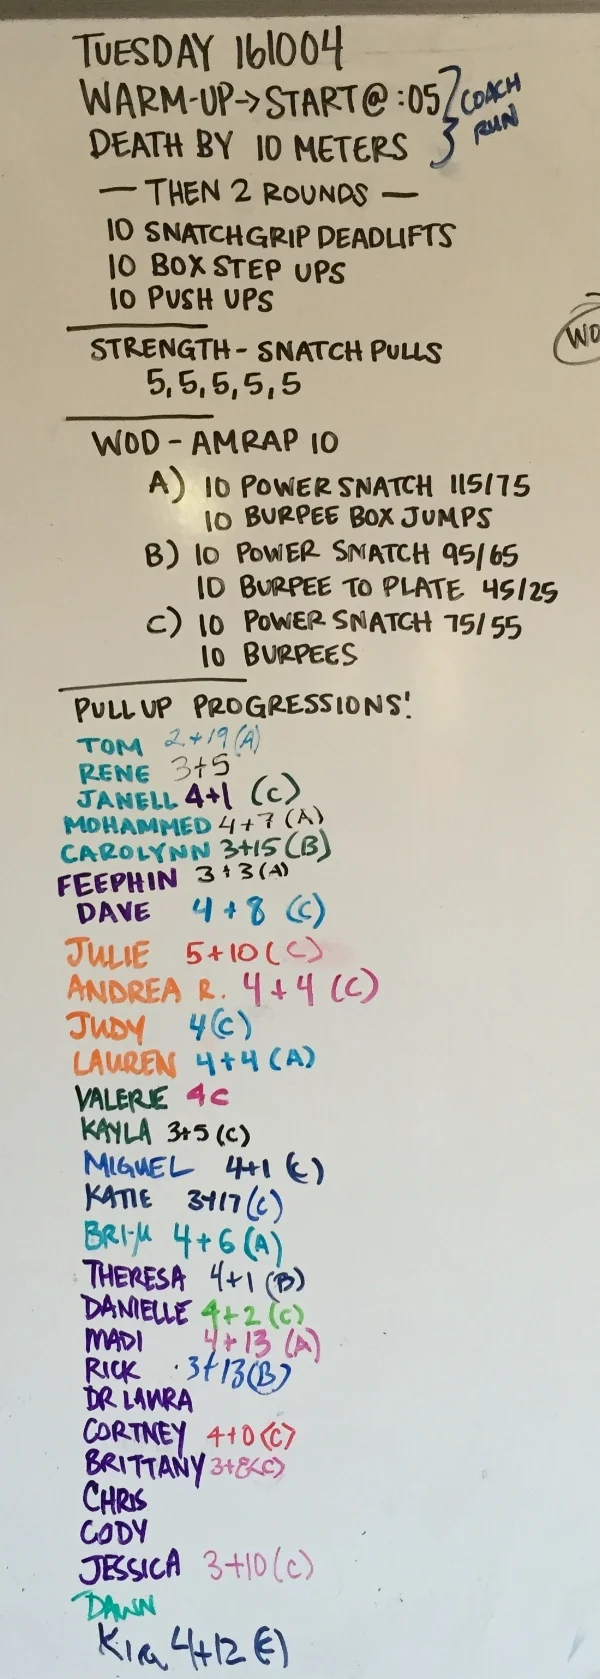 TUESDAY 161004
WARM-UP→START@:05 } COACH RUN
DEATH BY 10 METERS
— THEN 2 ROUNDS —
10 SNATCHGRIP DEADLIFTS
10 BOX STEP UPS
10 PUSH UPS
WO
STRENGTH - SNATCH PULLS
5, 5, 5, 5, 5
WOD - AMRAP 10
A) 10 POWER SNATCH 115/75
10 BURPEE BOX JUMPS
B) 10 POWER SNATCH 95/65
10 BURPEE TO PLATE 45/25
C) 10 POWER SNATCH 75/55
10 BURPEES
PULL UP PROGRESSIONS!
TOM 2+19(A)
RENE 3+5
JANELL 4+1 (C)
MOHAMMED 4+7 (A)
CAROLYNN 3+15(B)
FEEPHIN 3+3(A)
DAVE 4+8 (C)
JULIE 5+10(C)
ANDREA R. 4+4 (C)
JUDY 4(C)
LAUREN 4+4(A)
VALERIE 4C
KAYLA 3+5(C)
MIGUEL 4+1 (C)
KATIE 3+17(C)
BRI-M 4+6(A)
THERESA 4+1(B)
DANIELLE 4+2(C)
MADI 4+13(A)
RICK 3+13(B)
DR LAURA
CORTNEY 4+0(C)
BRITTANY 3+8(C)
CHRIS
CODY
JESSICA 3+10(C)
DAWN
Kira 4+12